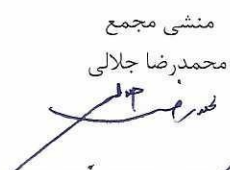 منشی مجمع
محمدرضا جلالی